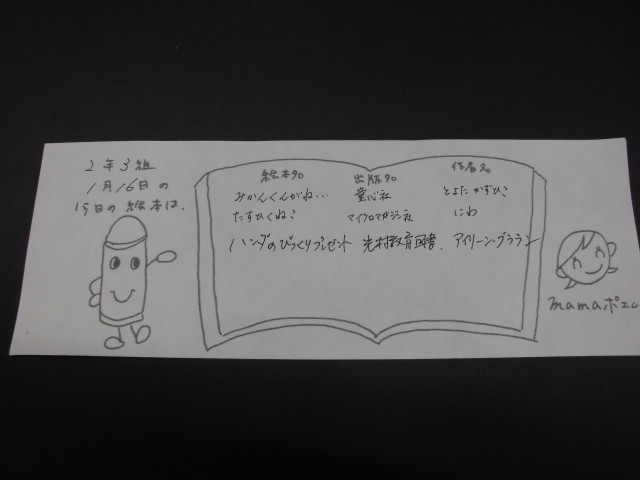 2年3組
1月16日の
15日の絵本は、
絵本名 出版名 作者名
みかんくんがね… 童心社 とよたかずひこ
たすひくねこ マイクロマガジン社 にわ
ハンダのびっくりプレゼント 光村教育図書、 アイリーン・ブラウン
mamaポエム